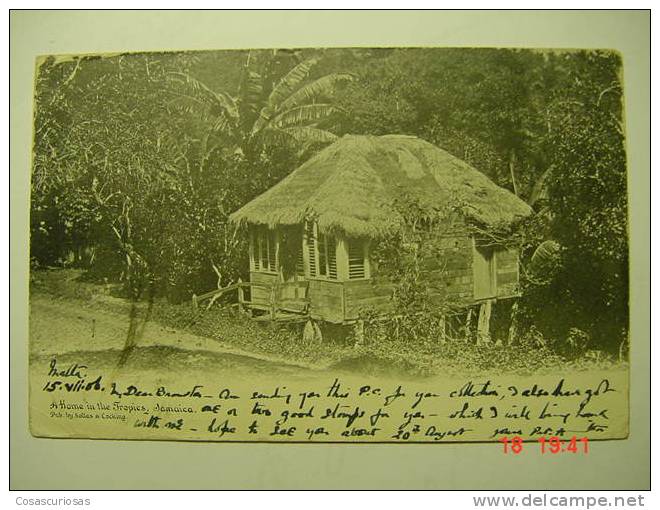 Malta
15.VII.06 My Dear Brownton - Am sending you this P.C. for your collection, I also have got
A Home in the Tropics, Jamaica. one or two good stamps for you - which I will bring home
Pub. by Sollas & Cocking. with me - hope to see you about 20th August yours
18 19:41
Cosascuriosas
www.delcampe.net